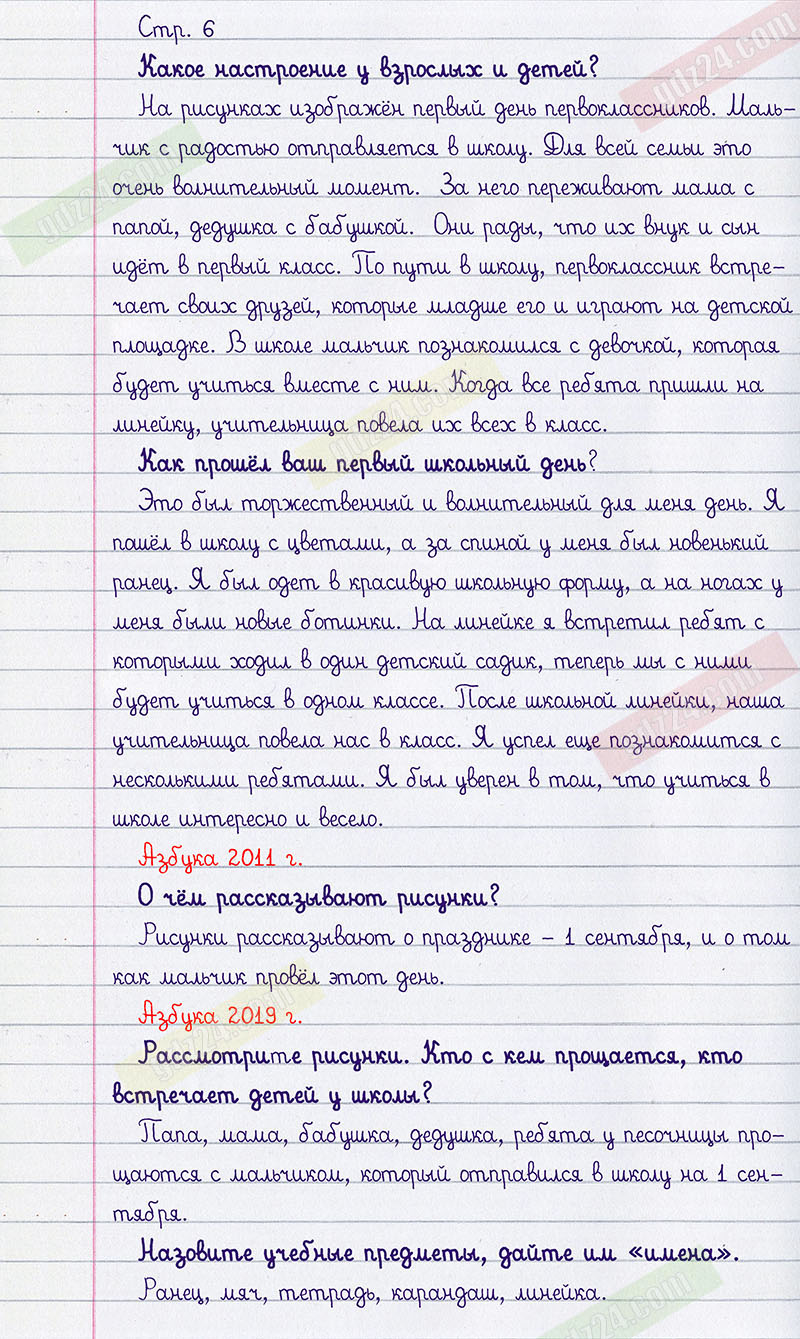 Стр. 6
Какое настроение у взрослых и детей?
На рисунках изображён первый день первоклассников. Маль-
чик с радостью отправляется в школу. Для всей семьи это
очень волнительный момент. За него переживают мама с
папой, дедушка с бабушкой. Они рады, что их внук и сын
идёт в первый класс. По пути в школу, первоклассник встре-
чает своих друзей, которые младше его и играют на детской
площадке. В школе мальчик познакомился с девочкой, которая
будет учиться вместе с ним. Когда все ребята пришли на
линейку, учительница повела их всех в класс.
Как прошёл ваш первый школьный день?
Это был торжественный и волнительный для меня день. Я
пошёл в школу с цветами, а за спиной у меня был новенький
ранец. Я был одет в красивую школьную форму, а на ногах у
меня были новые ботинки. На линейке я встретил ребят с
которыми ходил в один детский садик, теперь мы с ними
будет учиться в одном классе. После школьной линейки, наша
учительница повела нас в класс. Я успел еще познакомится с
несколькими ребятами. Я был уверен в том, что учиться в
школе интересно и весело.
Азбука 2011 г.
О чём рассказывают рисунки?
Рисунки рассказывают о празднике – 1 сентября, и о том
как мальчик провёл этот день.
Азбука 2019 г.
Рассмотрите рисунки. Кто с кем прощается, кто
встречает детей у школы?
Папа, мама, бабушка, дедушка, ребята у песочницы про-
щаются с мальчиком, который отправился в школу на 1 сен-
тября.
Назовите учебные предметы, дайте им «имена».
Ранец, мяч, тетрадь, карандаш, линейка.
gdz24.com
gdz24.com
gdz24.com
gdz24.com
gdz24.com
gdz24.com